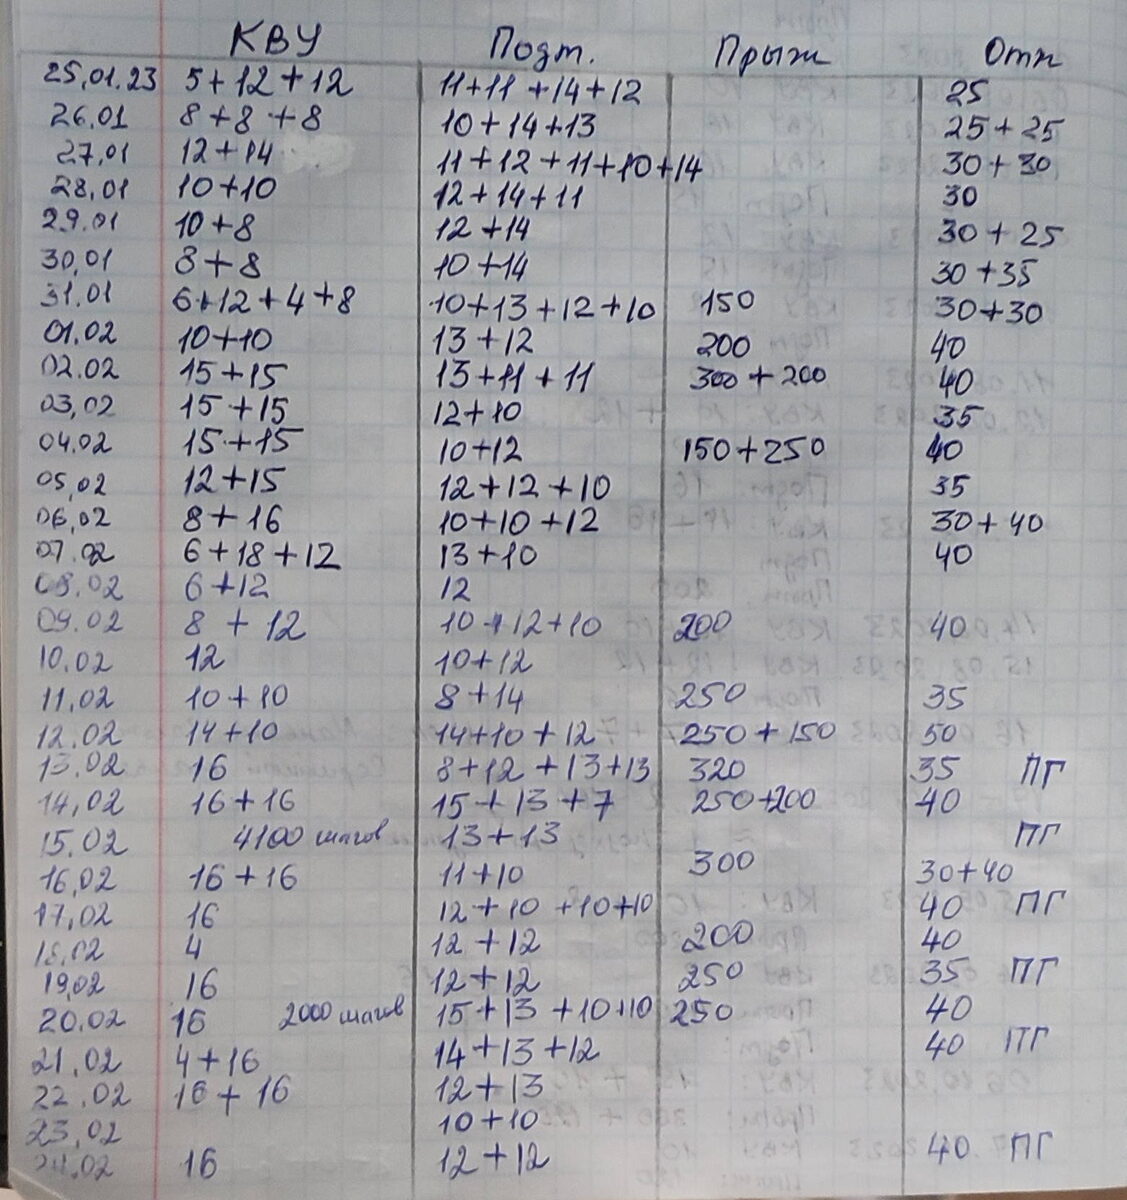 КВУ Подт. Прыж Отж
25.01.23 5+12+12 11+11+14+12 25
26.01 8+8+8 10+14+13 25+25
27.01 12+14 11+12+11+10+14 30+30
28.01 10+10 12+14+11 30
29.01 10+8 12+14 30+25
30.01 8+8 10+14 30+35
31.01 6+12+4+8 10+13+12+10 150 30+30
01.02 10+10 13+12 200 40
02.02 15+15 13+11+11 300+200 40
03.02 15+15 12+10 35
04.02 15+15 10+12 150+250 40
05.02 12+15 12+12+10 35
06.02 8+16 10+10+12 30+40
07.02 6+18+12 13+10 40
08.02 6+12 12
09.02 8+12 10+12+10 200 40
10.02 12 10+12
11.02 10+10 8+14 250 35
12.02 14+10 14+10+12 250+150 50
13.02 16 8+12+13+13 320 35 ПГ
14.02 16+16 15+13+7 250+200 40
15.02 4100 шагов 13+13 ПГ
16.02 16+16 11+10 300 30+40
17.02 16 12+10+10+10 40 ПГ
18.02 4 12+12 200 40
19.02 16 12+12 250 35 ПГ
20.02 16 2000 шагов 15+13+10+10 250 40
21.02 4+16 14+13+12 40 ПГ
22.02 16+16 12+13
23.02 10+10
24.02 16 12+12 40 ПГ